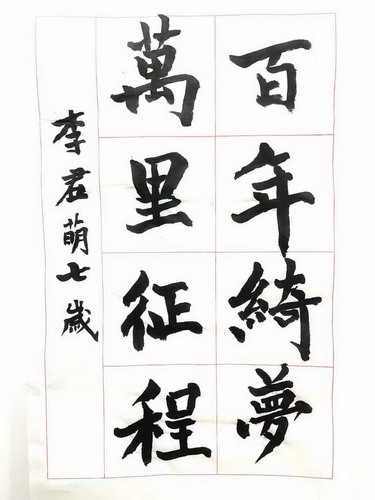 百年綺夢
萬里征程
李君萌七歲